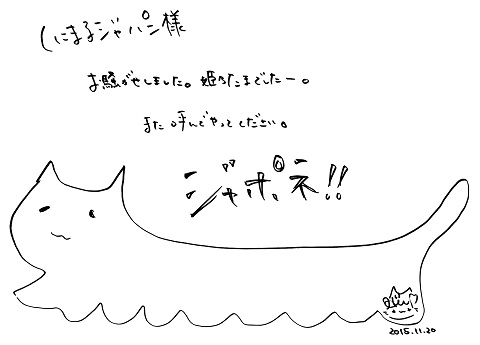 にまるジャパン様
お騒がせしました。姫乃たまでしたー。
また呼んでやってください。
ジャポネ!!
2015.11.20